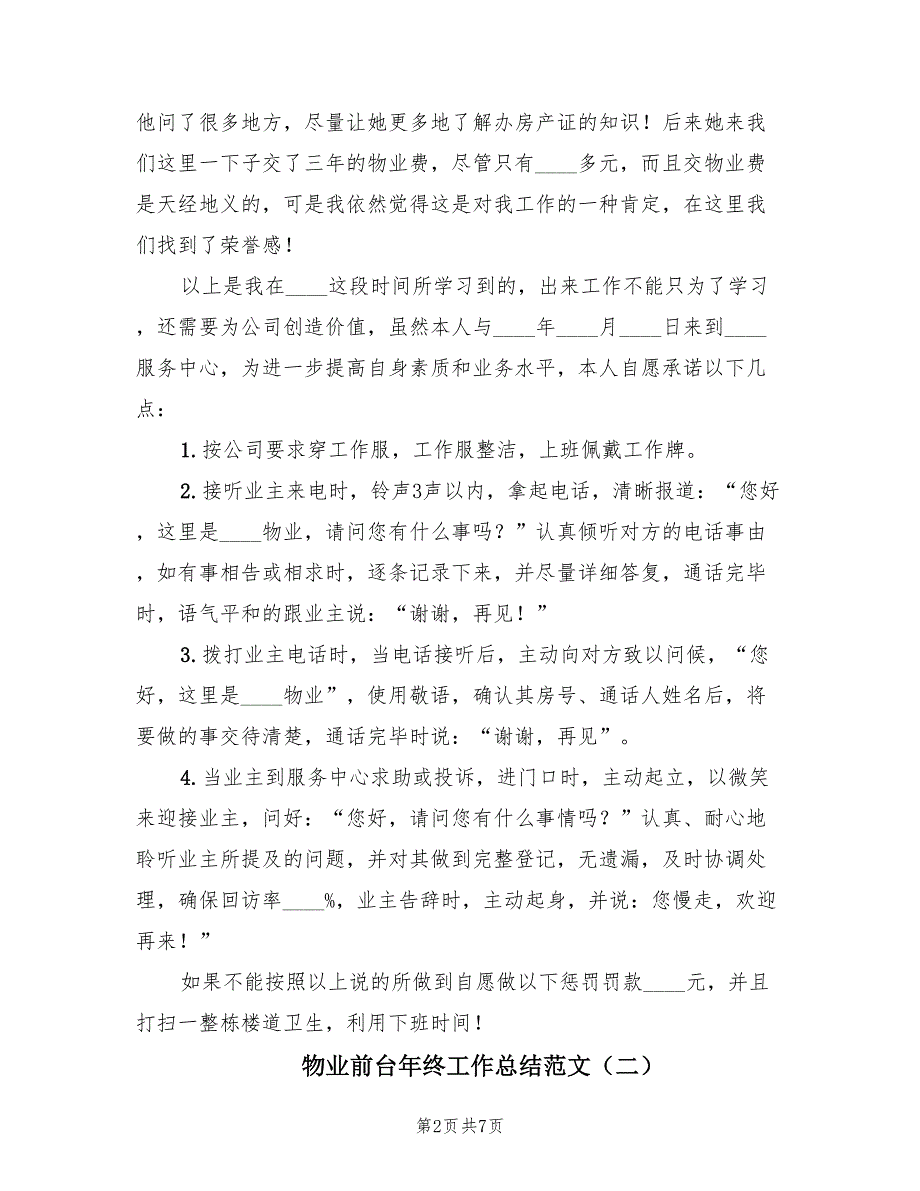 他问了很多地方，尽量让她更多地了解办房产证的知识！后来她来我
们这里一下子交了三年的物业费，尽管只有____多元，而且交物业费
是天经地义的，可是我依然觉得这是对我工作的一种肯定，在这里我
们找到了荣誉感！
以上是我在____这段时间所学习到的，出来工作不能只为了学习
，还需要为公司创造价值，虽然本人与____年____月____日来到____
服务中心，为进一步提高自身素质和业务水平，本人自愿承诺以下几
点：
1. 按公司要求穿工作服，工作服整洁，上班佩戴工作牌。
2. 接听业主来电时，铃声3声以内，拿起电话，清晰报道：“您好
，这里是____物业，请问您有什么事吗？”认真倾听对方的电话事由
，如有事相告或相求时，逐条记录下来，并尽量详细答复，通话完毕
时，语气平和的跟业主说：“谢谢，再见！”
3. 拨打业主电话时，当电话接听后，主动向对方致以问候，“您
好，这里是____物业”，使用敬语，确认其房号、通话人姓名后，将
要做的事交待清楚，通话完毕时说：“谢谢，再见”。
4. 当业主到服务中心求助或投诉，进门口时，主动起立，以微笑
来迎接业主，问好：“您好，请问您有什么事情吗？”认真、耐心地
聆听业主所提及的问题，并对其做到完整登记，无遗漏，及时协调处
理，确保回访率____%，业主告辞时，主动起身，并说：您慢走，欢迎
再来！”
如果不能按照以上说的所做到自愿做以下惩罚罚款____元，并且
打扫一整栋楼道卫生，利用下班时间！
物业前台年终工作总结范文（二）
第2页 共7页